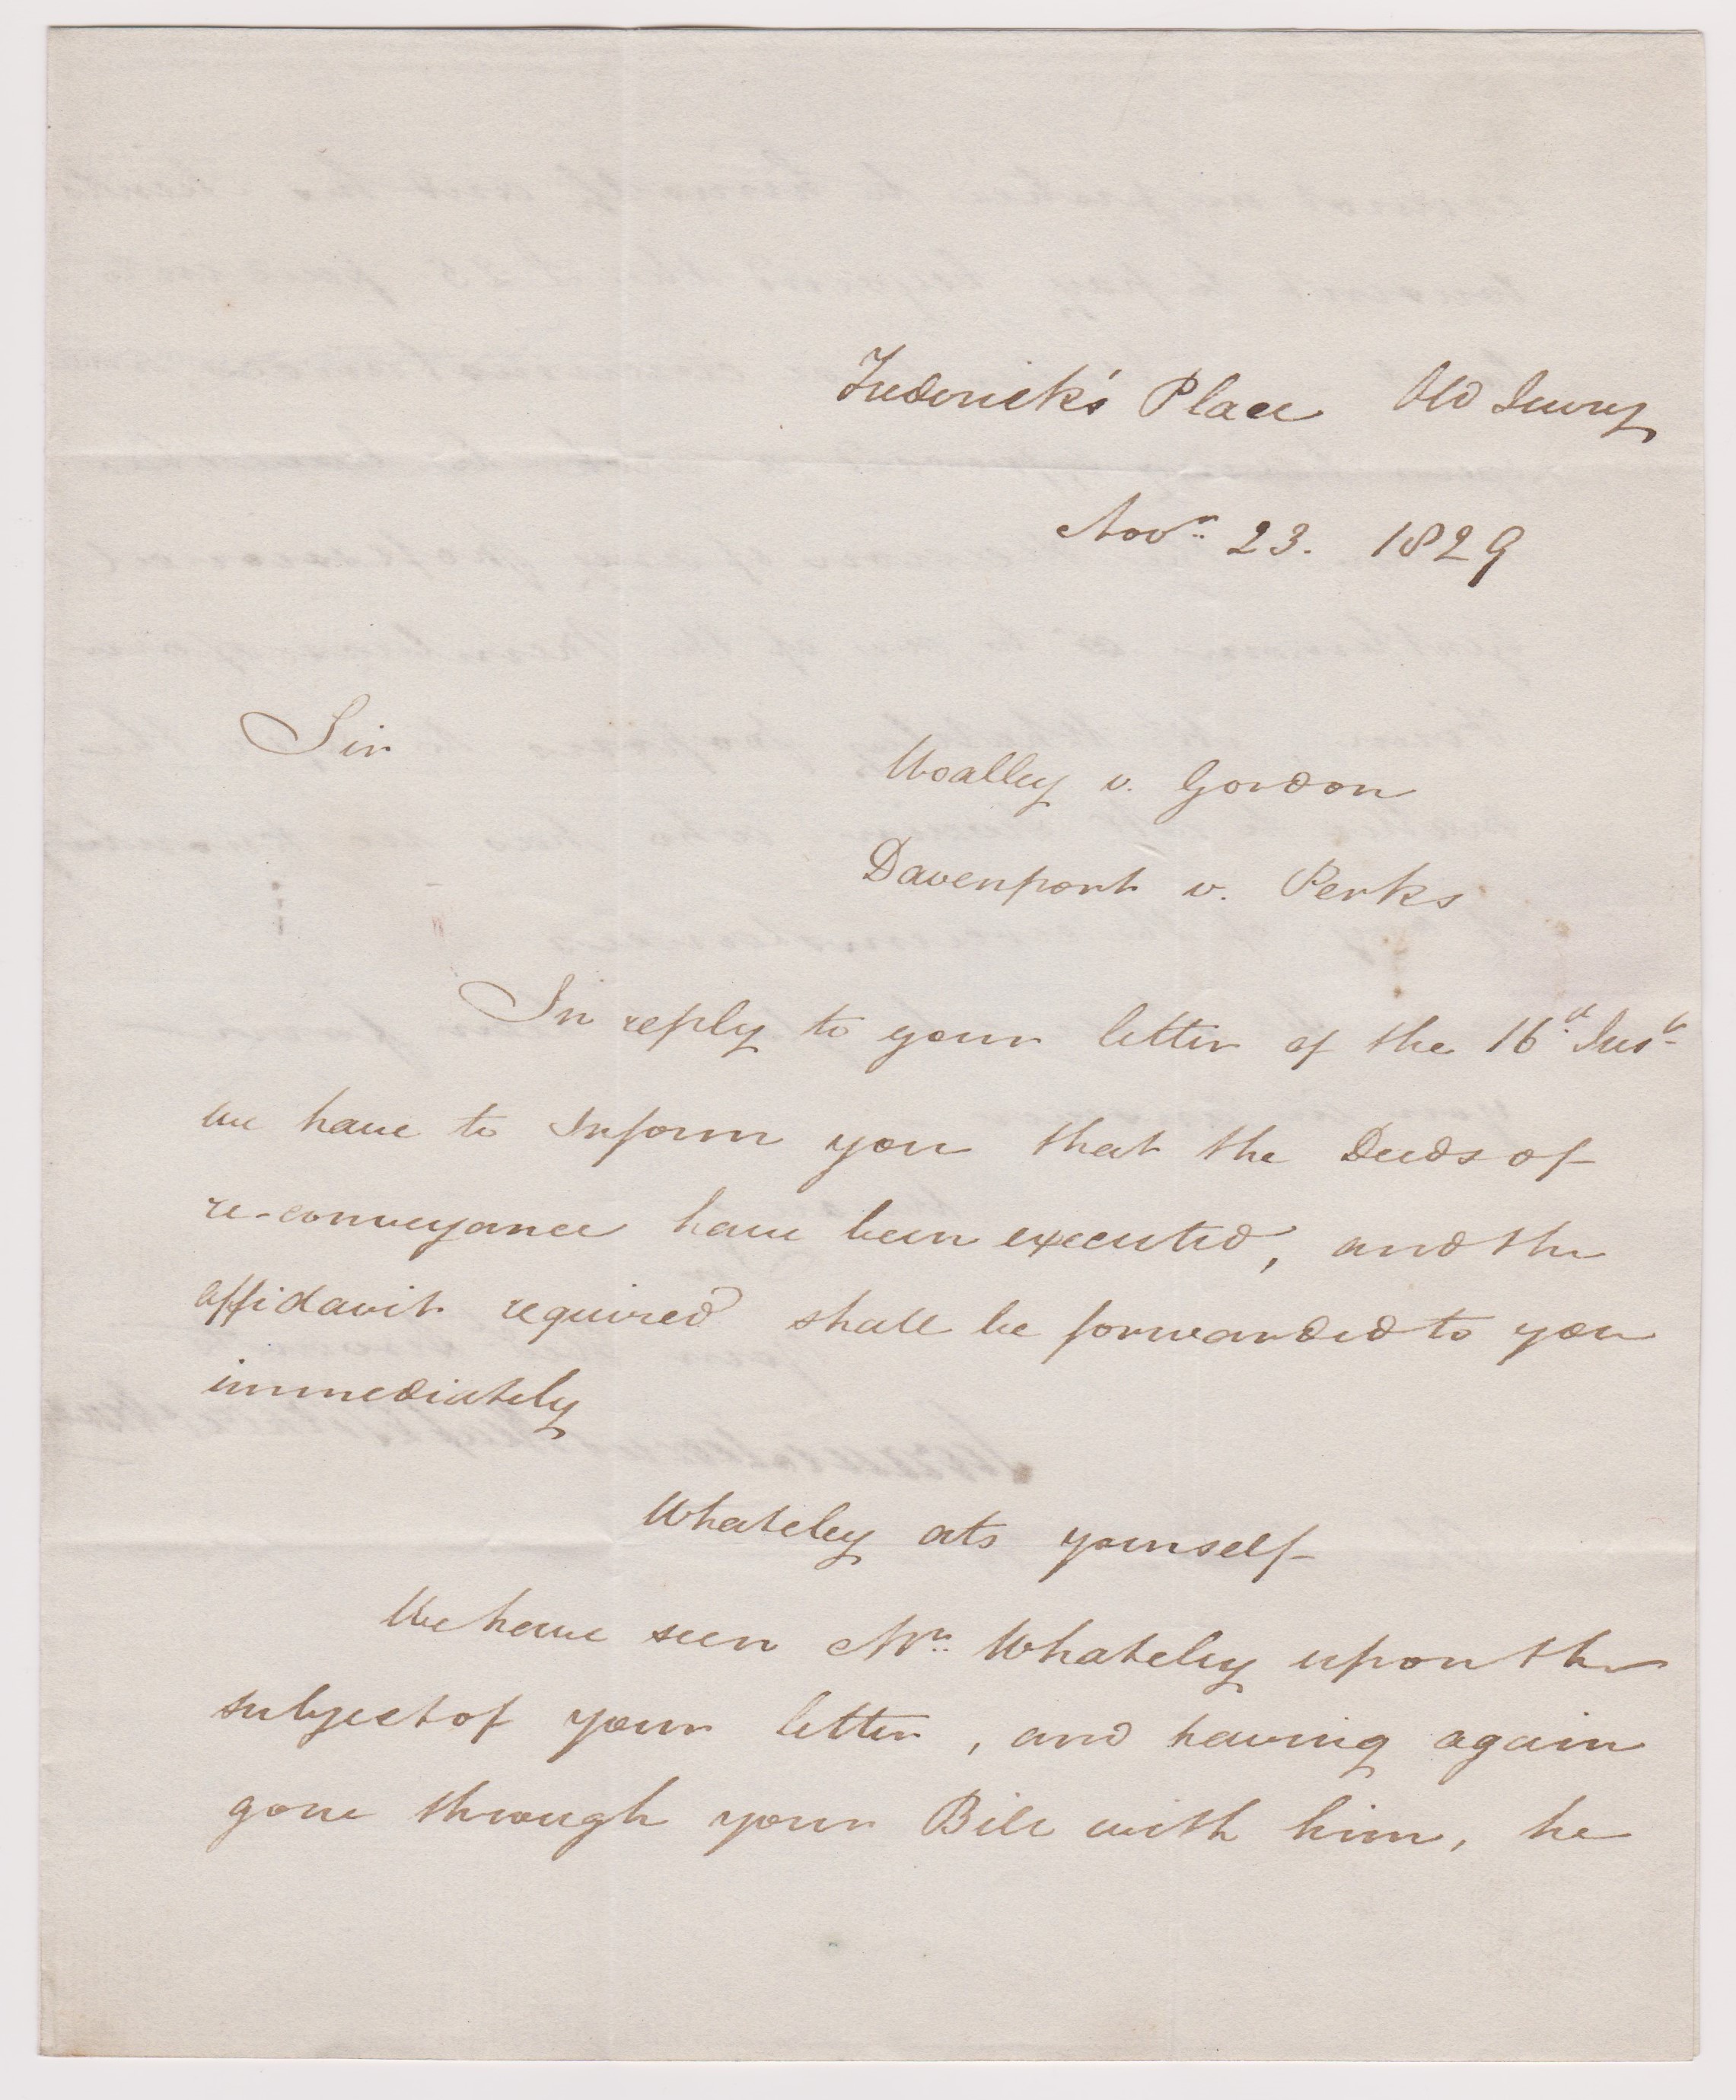 Frederick's Place Old Jewry
Novr. 23. 1829
Sir
Woalley v. Gordon
Davenport v. Perks
In reply to your letter of the 16th Inst
we have to inform you that the Deeds of
re-conveyance have been executed, and the
affidavit required shall be forwarded to you
immediately
Whateley ats yourself
We have seen Mr. Whateley upon the
subject of your letter, and having again
gone through your Bill with him, he